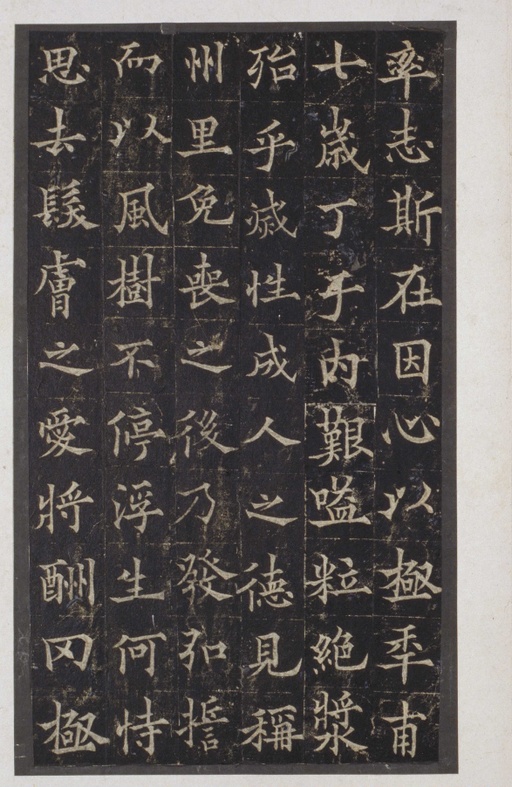 率志斯在因心以極年甫
七歳丁于内艱嗌粒絶漿
殆乎滅性成人之德見稱
州里免喪之後乃發弘誓
而以風樹不停浮生何恃
思去髮膚之愛將酬罔極